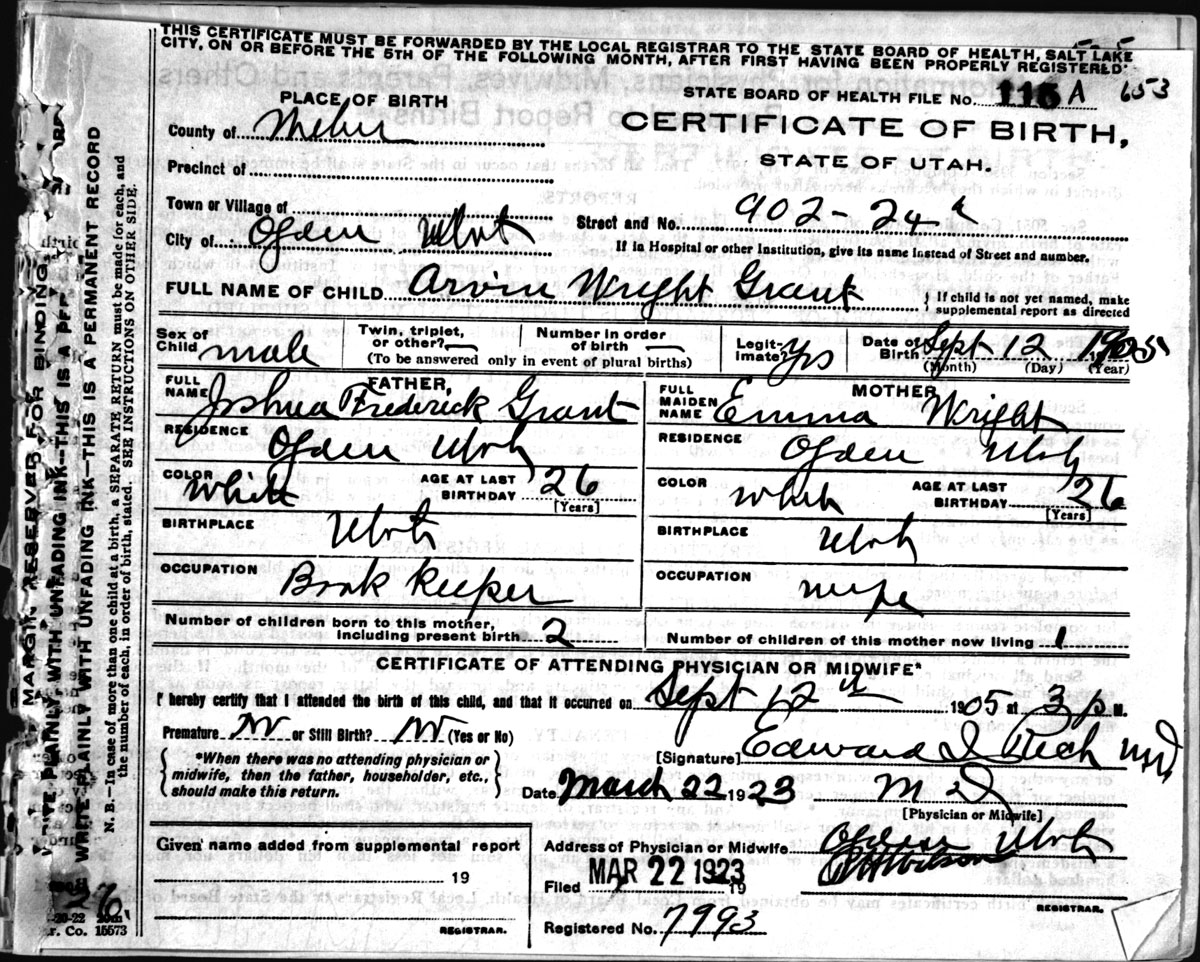 THIS CERTIFICATE MUST BE FORWARDED BY THE LOCAL REGISTRAR TO THE STATE BOARD OF HEALTH, SALT LAKE
CITY, ON OR BEFORE THE 5TH OF THE FOLLOWING MONTH, AFTER FIRST HAVING BEEN PROPERLY REGISTERED.
PLACE OF BIRTH
STATE BOARD OF HEALTH FILE No. 116 A 653
County of Weber
CERTIFICATE OF BIRTH,
STATE OF UTAH.
Precinct of
Town or Village of
Street and No. 902-24th
City of Ogden Utah
If in Hospital or other Institution, give its name instead of Street and number.
FULL NAME OF CHILD Arvin Wright Grant } If child is not yet named, make supplemental report as directed
Sex of Child male Twin, triplet, or other? — Number in order of birth — Legitimate? Yes Date of Birth Sept 12 1905
(To be answered only in event of plural births) (Month) (Day) (Year)
FATHER, MOTHER
FULL NAME Joshua Frederick Grant FULL MAIDEN NAME Emma Wright
RESIDENCE Ogden Utah RESIDENCE Ogden Utah
COLOR White AGE AT LAST BIRTHDAY 26 [Years] COLOR White AGE AT LAST BIRTHDAY 26 [Years]
BIRTHPLACE Utah BIRTHPLACE Utah
OCCUPATION Book Keeper OCCUPATION wife
Number of children born to this mother, including present birth 2 Number of children of this mother now living 1
CERTIFICATE OF ATTENDING PHYSICIAN OR MIDWIFE*
I hereby certify that I attended the birth of this child, and that it occurred on Sept 12th 1905 at 3 p M.
Premature No or Still Birth? No (Yes or No)
[Signature] Edward I Rich MD
{ *When there was no attending physician or midwife, then the father, householder, etc., should make this return. }
Date March 22 1923 M D
[Physician or Midwife]
Given name added from supplemental report
Address of Physician or Midwife Ogden Utah
19
Filed MAR 22 1923 19
REGISTRAR.
REGISTRAR.
Registered No. 7993
MARGIN RESERVED FOR BINDING
WRITE PLAINLY WITH UNFADING INK—THIS IS A PERMANENT RECORD
N. B.—In case of more than one child at a birth, a SEPARATE RETURN must be made for each, and
the number of each, in order of birth, stated. SEE INSTRUCTIONS ON OTHER SIDE.
Co. 15573